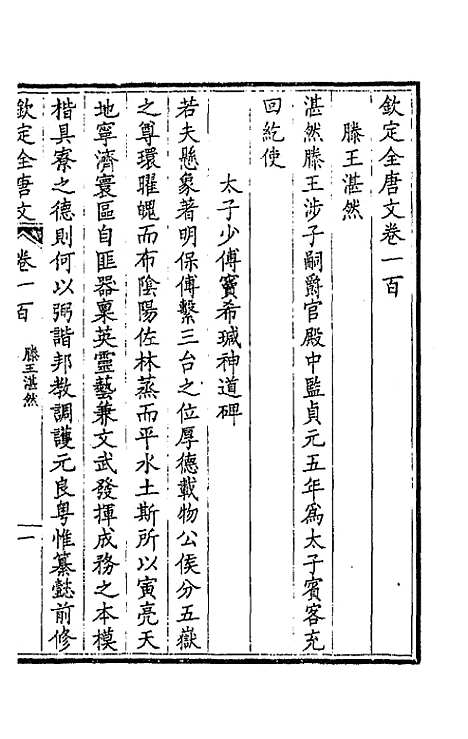 欽定全唐文卷一百
滕王湛然
湛然滕王涉子嗣爵官殿中監貞元五年爲太子賓客充
回紇使
太子少傅竇希瑊神道碑
若夫懸象著明保傅繫三台之位厚德載物公侯分五嶽
之尊環曜魄而布陰陽佐林蒸而平水土斯所以寅亮天
地寧濟寰區自匪器稟英靈藝兼文武發揮成務之本模
楷具寮之德則何以弼諧邦教調護元良粵惟纂懿前修
欽定全唐文 卷一百 滕王湛然 一